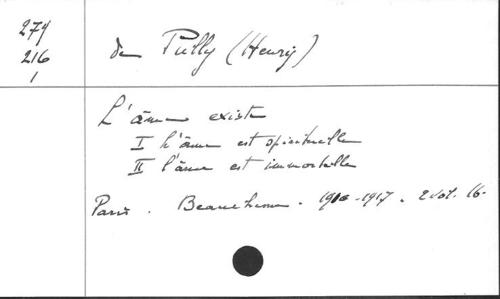 274
216
1
de Pully (Henry)
L'âme existe
I L'âme est spirituelle
II l'âme est immortelle
Paris. Beauchesne. 1916-1917. 2 vol. 16-